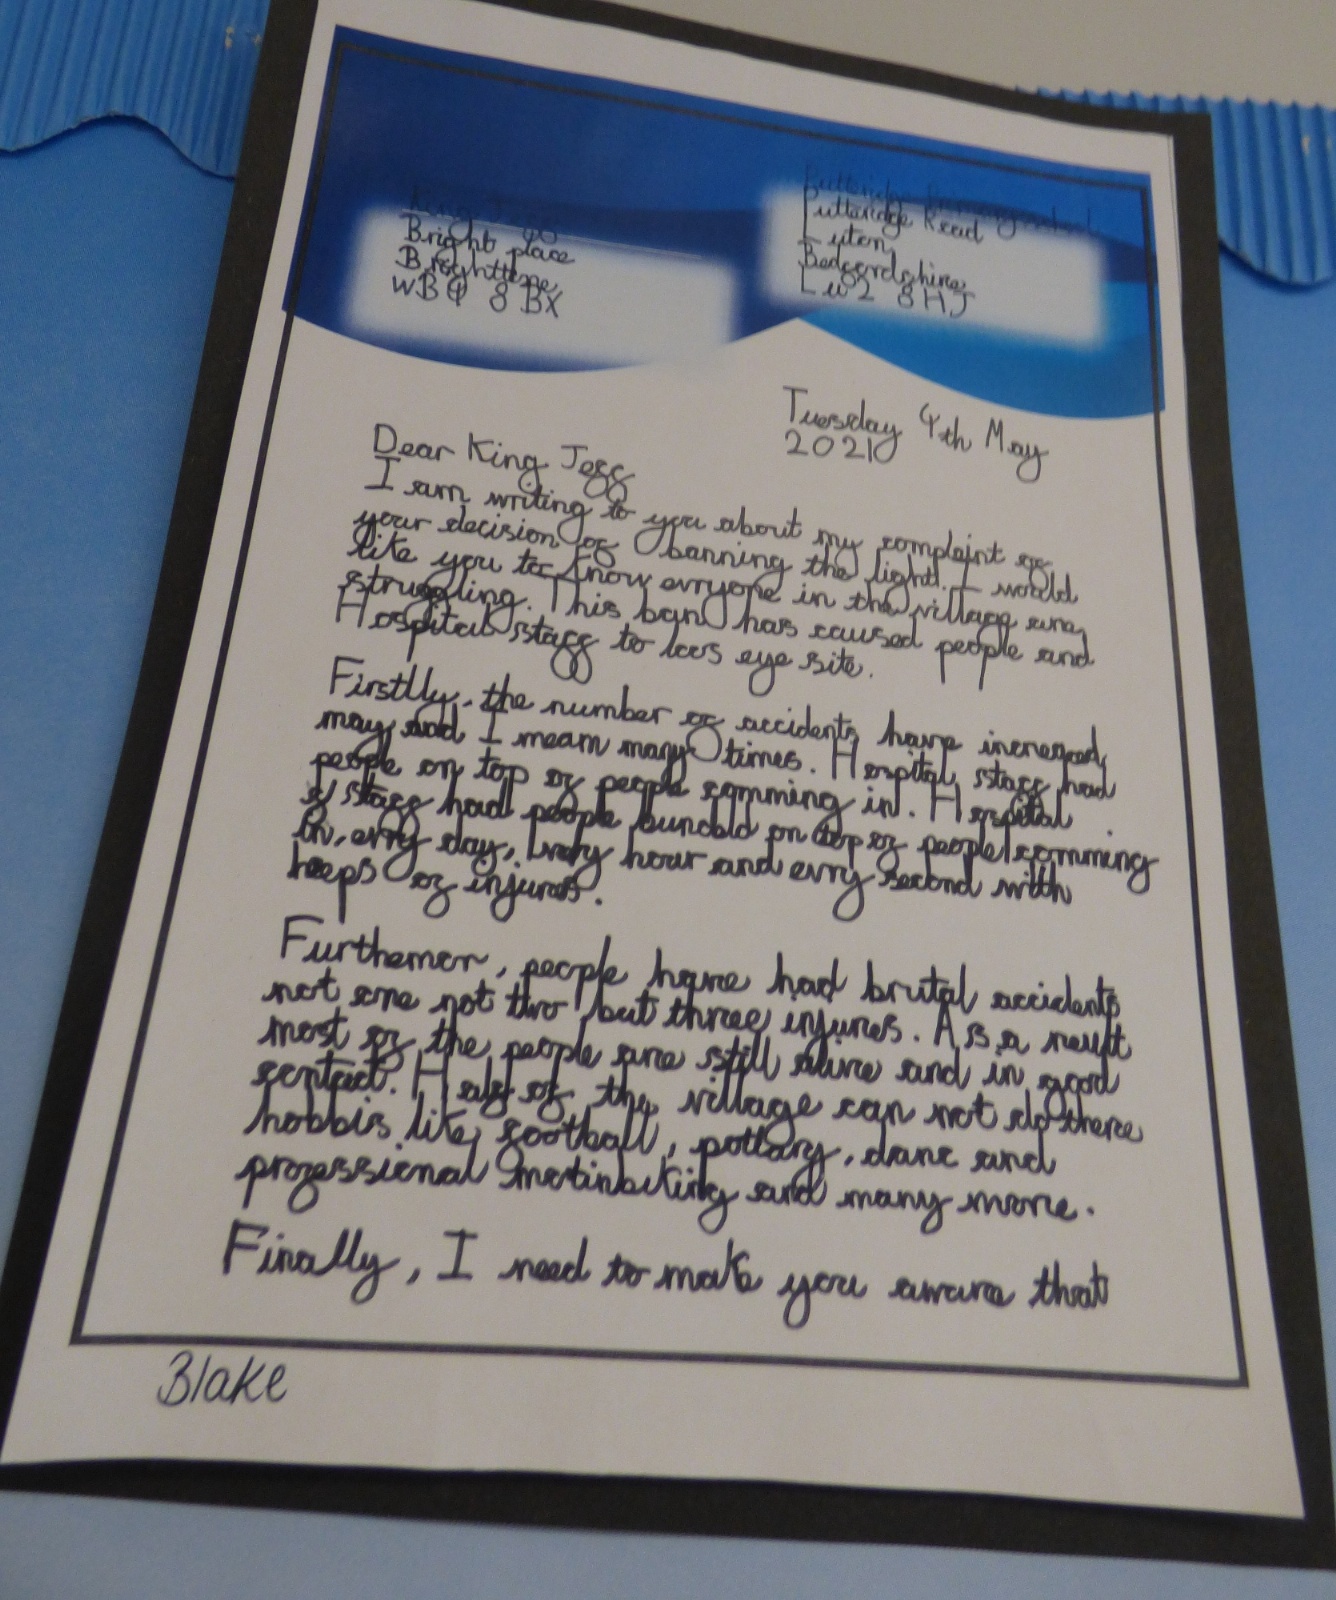 King Jeff
Bright place
Brighttone
WB4 8BX
Putteridge Primary school
Putteridge Road
Luton
Bedfordshire
Lu2 8HJ
Tuesday 4th May
2021
Dear King Jeff
I am writing to you about my complaint of
your decision of banning the light. I would
like you to know evryone in the village are
struggling. This ban has caused people and
Hospital staff to loos eye site.
Firstlly, the number of accidents have increased
may and I mean many times. Hospital staff had
people on top of people comming in. Hospital
staff had people bundeld on top of people comming
in, evry day, evry hour and evry second with
heeps of injures.
Furthemor, people have had brutal accidents
not one not two but three injures. As a result
most of the people are still alive and in good
contact. Half of the village can not do there
hobbis like football, pottary, danc and
professional motinbiking and many more.
Finally, I need to make you aware that
Blake